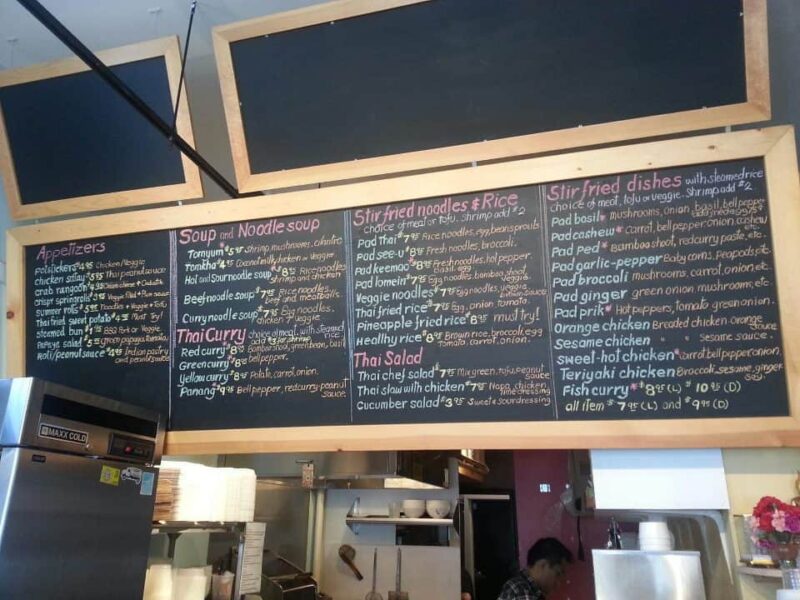 Appetizers
Potstickers $4.95 Chicken/Veggie
chicken satay $5.95 Thai peanut sauce
crab rangoon $4.95
crispy springrolls $3.95
summer rolls $5.95 Noodles + Veggie + Tofu
Thai fried sweet potato $4.95 Must try!
steamed bun $1.95 BBQ Pork or Veggie
Papaya salad $5.95 green papaya, tomato,
Roti/peanut sauce $4.95 Indian pastry
and peanut sauce
Soup and Noodle soup
Tomyum $5.95 Shrimp, mushrooms, cilantro
Tomkha $4.95 Coconut milk, chicken or Veggie
Hot and Sour noodle soup $8.95 Rice noodles
shrimp and chicken
Beef noodle soup $7.95 Rice noodles,
Beef and meatballs
Curry noodle soup $7.95 Egg noodles,
chicken/veggie
Thai Curry choice of meat, with steamed
rice
Red curry $8.95 Bamboo shoot, green bean, basil
Green curry $8.95 bell pepper.
Yellow curry $8.95 Potato, carrot, onion.
Panang $9.95 Bell pepper, red curry, peanut
sauce.
Stir fried noodles & Rice
choice of meat or Tofu. Shrimp add $2
Pad thai $7.95 Rice noodles, egg, bean sprouts
Pad see-u $8.95 Fresh noodles, broccoli.
Pad keemao $8.95 Fresh noodles, hot pepper,
basil, egg
Pad lomein $7.95 Egg noodles, bamboo shoot,
veggie
Veggie noodles $7.95 Egg noodles, veggie
Thai fried rice $7.95 Egg, onion, tomato.
Pineapple fried rice $8.95 must try!
Healthy rice $8.95 Brown rice, broccoli, egg
tomato, carrot, onion.
Thai Salad
Thai chef salad $7.95 Mix green, tofu, peanut
sauce
Thai slaw with chicken $7.95 Napa, chicken,
lime dressing
Cucumber salad $3.95 Sweet & Sour dressing
Stir fried dishes with steamed rice
choice of meat, tofu or veggie. Shrimp add $2
Pad basil* mushrooms, onion, basil, bell pepper
Pad cashew* carrot, bell pepper, onion, cashew
Pad Ped* Bamboo shoot, red curry paste, etc.
Pad garlic-pepper Baby corns, Peapods, etc
Pad broccoli mushrooms, carrot, onion, etc.
Pad ginger green onion, mushrooms, etc.
Pad prik* Hot peppers, tomato, green onion.
Orange chicken Breaded chicken, orange
sauce
Sesame chicken " " sesame sauce.
sweet-hot chicken* carrot, bell pepper, onion.
Teriyaki chicken Broccoli, sesame, ginger
soy.
Fish curry* $8.95 (L) $10.95 (D)
all item $7.95 (L) and $9.95 (D)
MAXX COLD